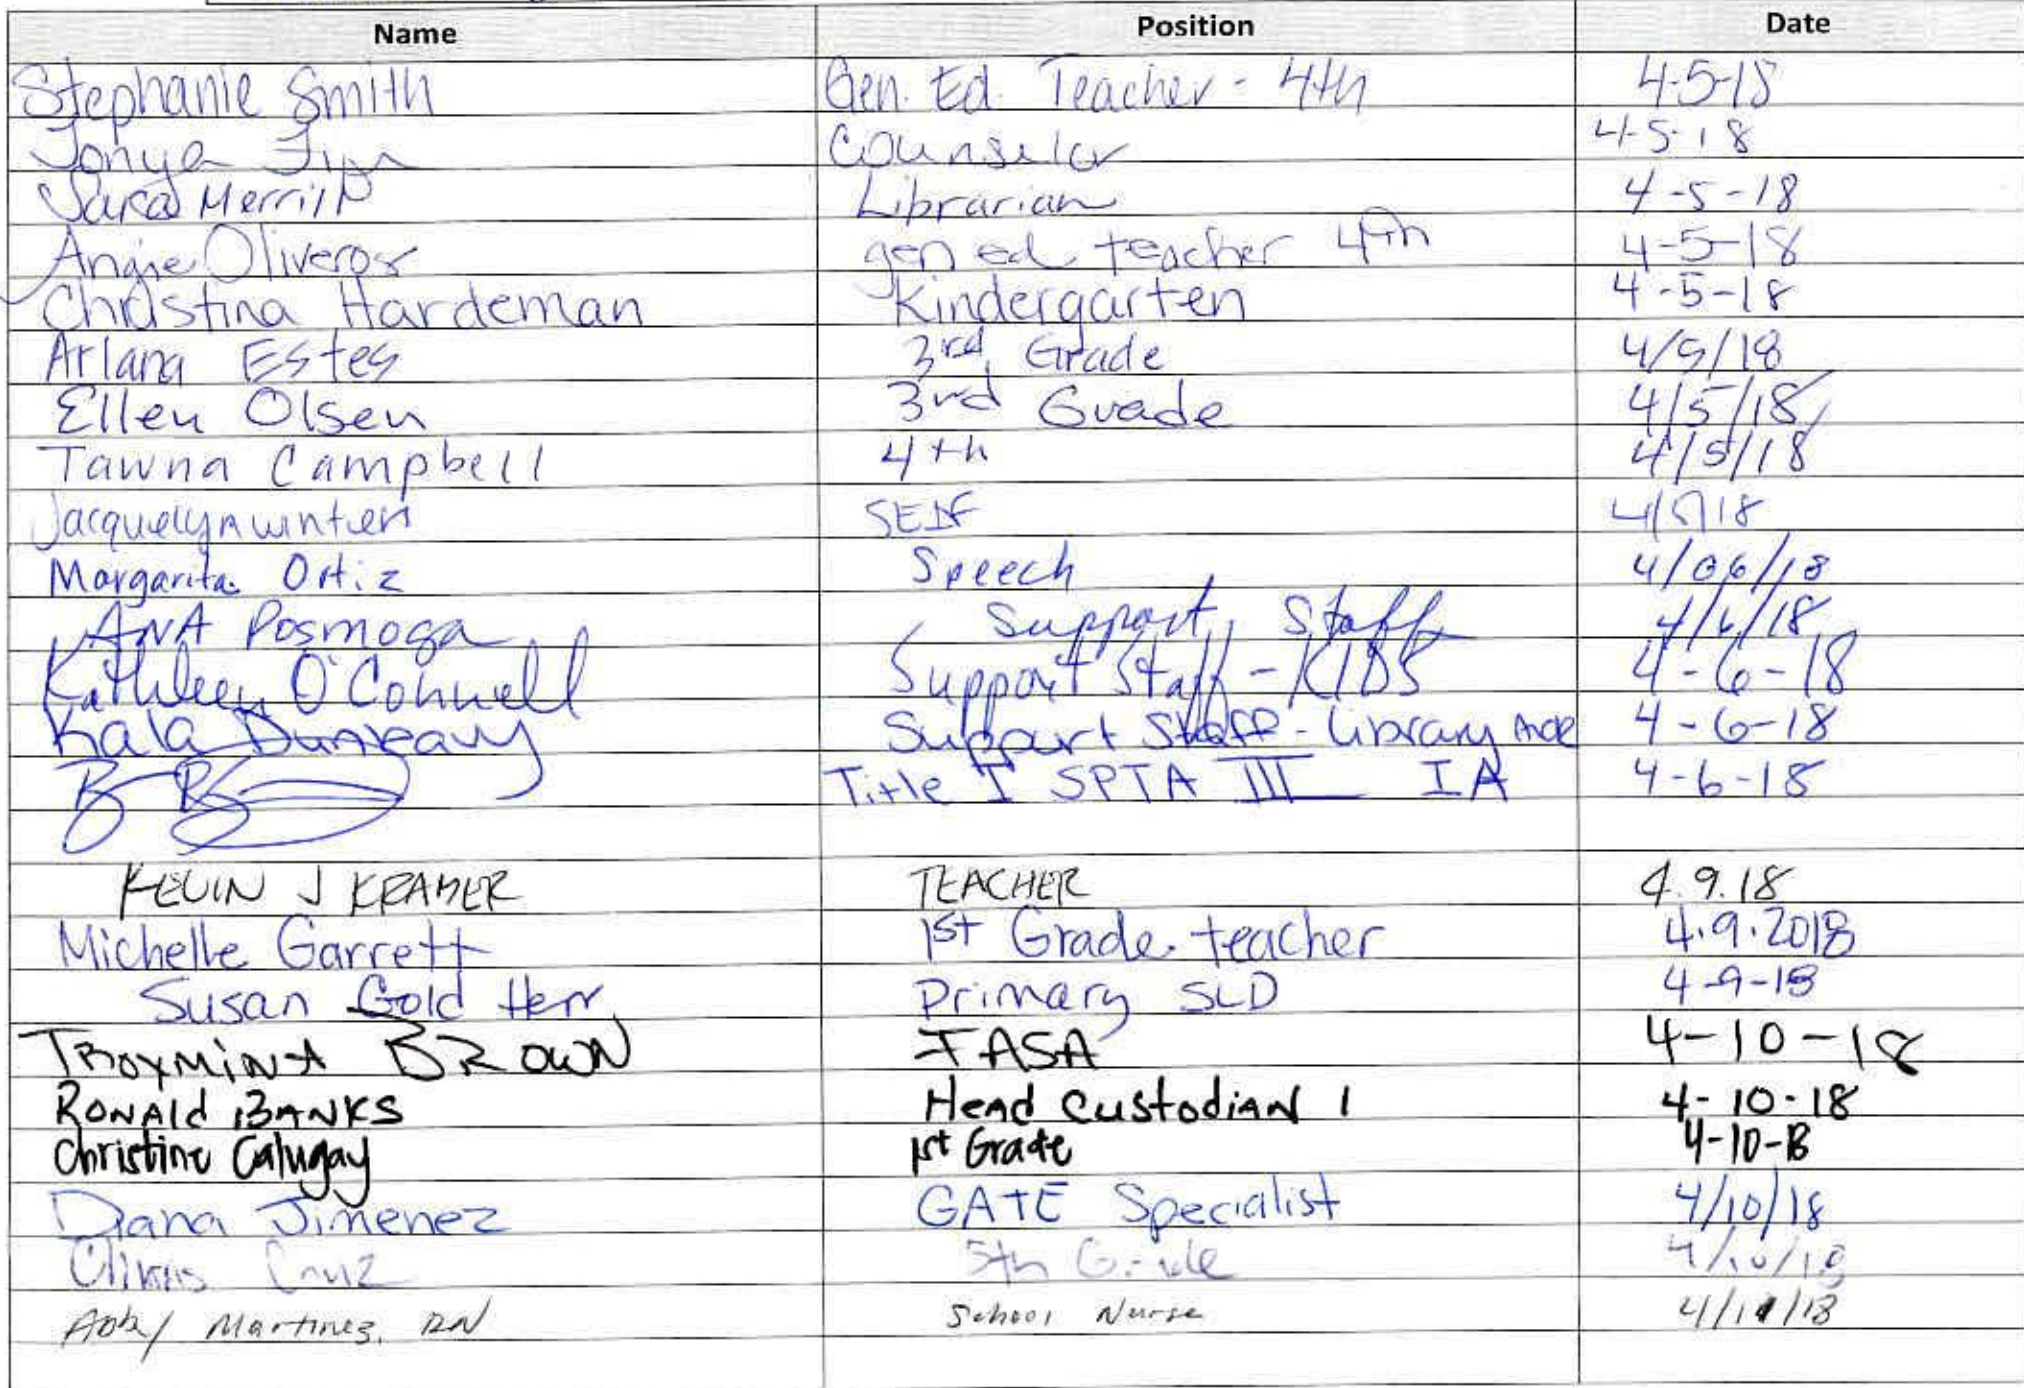 Name Position Date
Stephanie Smith Gen. Ed. Teacher - 4th 4-5-18
Tonya Counselor 4-5-18
Sara Merrill Librarian 4-5-18
Angie Oliveros gen ed teacher 4th 4-5-18
Christina Hardeman Kindergarten 4-5-18
Arlana Estes 3rd Grade 4/5/18
Ellen Olsen 3rd Grade 4/5/18
Tawna Campbell 4th 4/5/18
Jacquelyn winter 4/5/18
Margarita Ortiz Speech 4/06/18
ANA Posmoga Support Staff 4/6/18
Kathleen O'Connell Support Staff - KIDS 4-6-18
Kala Dunleavy Support Staff - Library Aide 4-6-18
Title I SPTA III IA 4-6-18
KEVIN J KRAMER TEACHER 4.9.18
Michelle Garrett 1st Grade teacher 4.9.2018
Susan Gold Herr Primary SLD 4-9-18
TROYMINA BROWN FASA 4-10-18
RONAld BANKS Head Custodian 1 4-10-18
Christine Calugay 1st Grade 4-10-18
Diana Jimenez GATE Specialist 4/10/18
Cruz 5th Grade 4/10/18
Abby Martinez, RN School Nurse 4/11/18